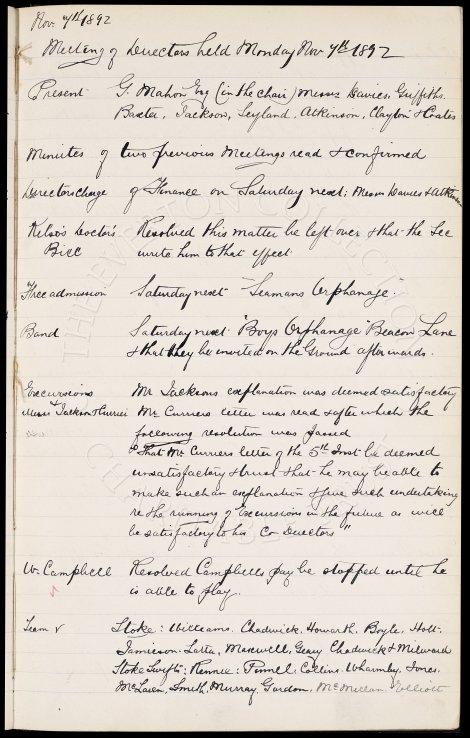 Nov. 7th 1892
Meeting of Directors held Monday Nov 7th 1892
Present G. Mahon Esq (in the chair) Messrs Davies, Griffiths,
Baxter, Jackson, Leyland, Atkinson, Clayton & Coates
Minutes of two previous Meetings read & confirmed
Directors Charge of Finance on Saturday next; Messrs Davies & Atkinson
Kelso's Doctor's Resolved this matter be left over & that the Sec
Bill write him to that effect.
Free admission Saturday next "Seamans Orphanage".
Band Saturday next "Boys Orphanage" Beacon Lane
& that they be invited on the Ground afterwards.
Excursions Mr Jacksons explanation was deemed satisfactory
Messrs Jackson & Currier Mr Curriers letter was read & after which the
following resolution was passed
"That Mr Curriers letter of the 5th Inst be deemed
unsatisfactory & trust that he may be able to
make such an explanation & give such undertaking
re the running of Excursions in the future as will
be satisfactory to his Co Directors"
W. Campbell Resolved Campbells pay be stopped until he
is able to play.
Team v Stoke: Williams, Chadwick, Howarth, Boyle, Holt,
Jamieson, Latta, Maxwell, Geary, Chadwick & Milward
Stoke Swifts: Rennie: Pinnell, Collins, Wharmby, Jones,
McLaren, Smith, Murray, Gordon, McMillan, Elliott
THE EVERTON COLLECTION